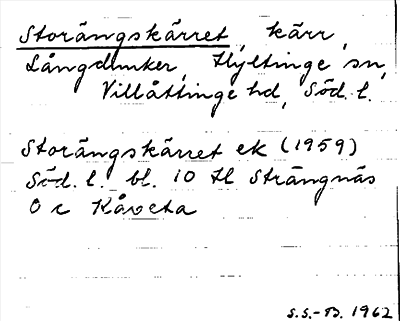 Storängskärret, kärr,
Långdunker, Hyltinge sn,
Villåttinge hd, Söd. l.
Storängskärret ek (1959)
Söd. l. bl. 10 tl Strängnäs
O c
S.S.-B. 1962